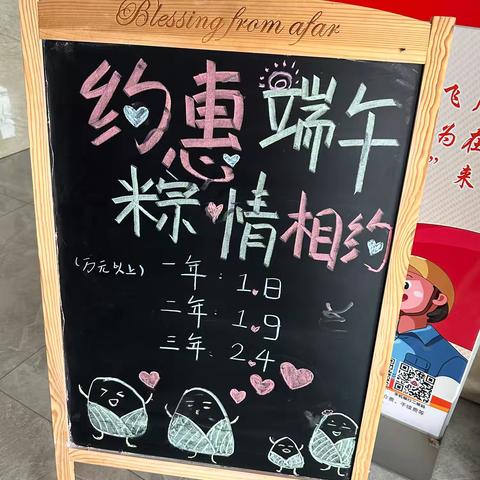 Blessing from afar
约惠端午
粽情相约
(万元以上)
一年:1.8
二年:1.9
三年:2.4
飞
为在
"来